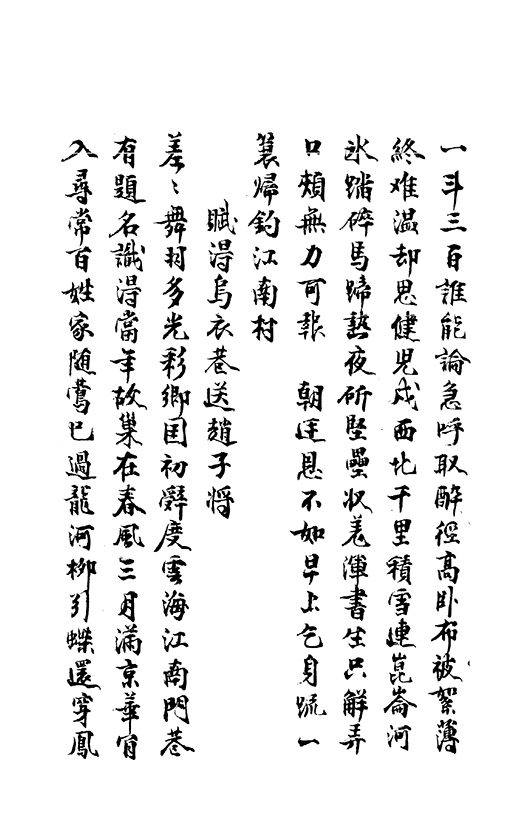 一斗三百誰能論急呼取醉徑高卧布被絮薄
終难温却思健児戍西北千里積雪連崑崙河
氷踏碎馬蹄熱夜斫堅壘収羌渾書生只解弄
口頰無力可報 朝廷恩不如早上乞身疏一
蓑歸釣江南村
賦淂烏衣巷送趙子将
差〻舞羽多光彩鄉国初辭度雲海江南門巷
有題名識淂當年故巢在春風三月滿京華宵
入尋常百姓家随鶯已過龍河柳引蝶還穿鳳